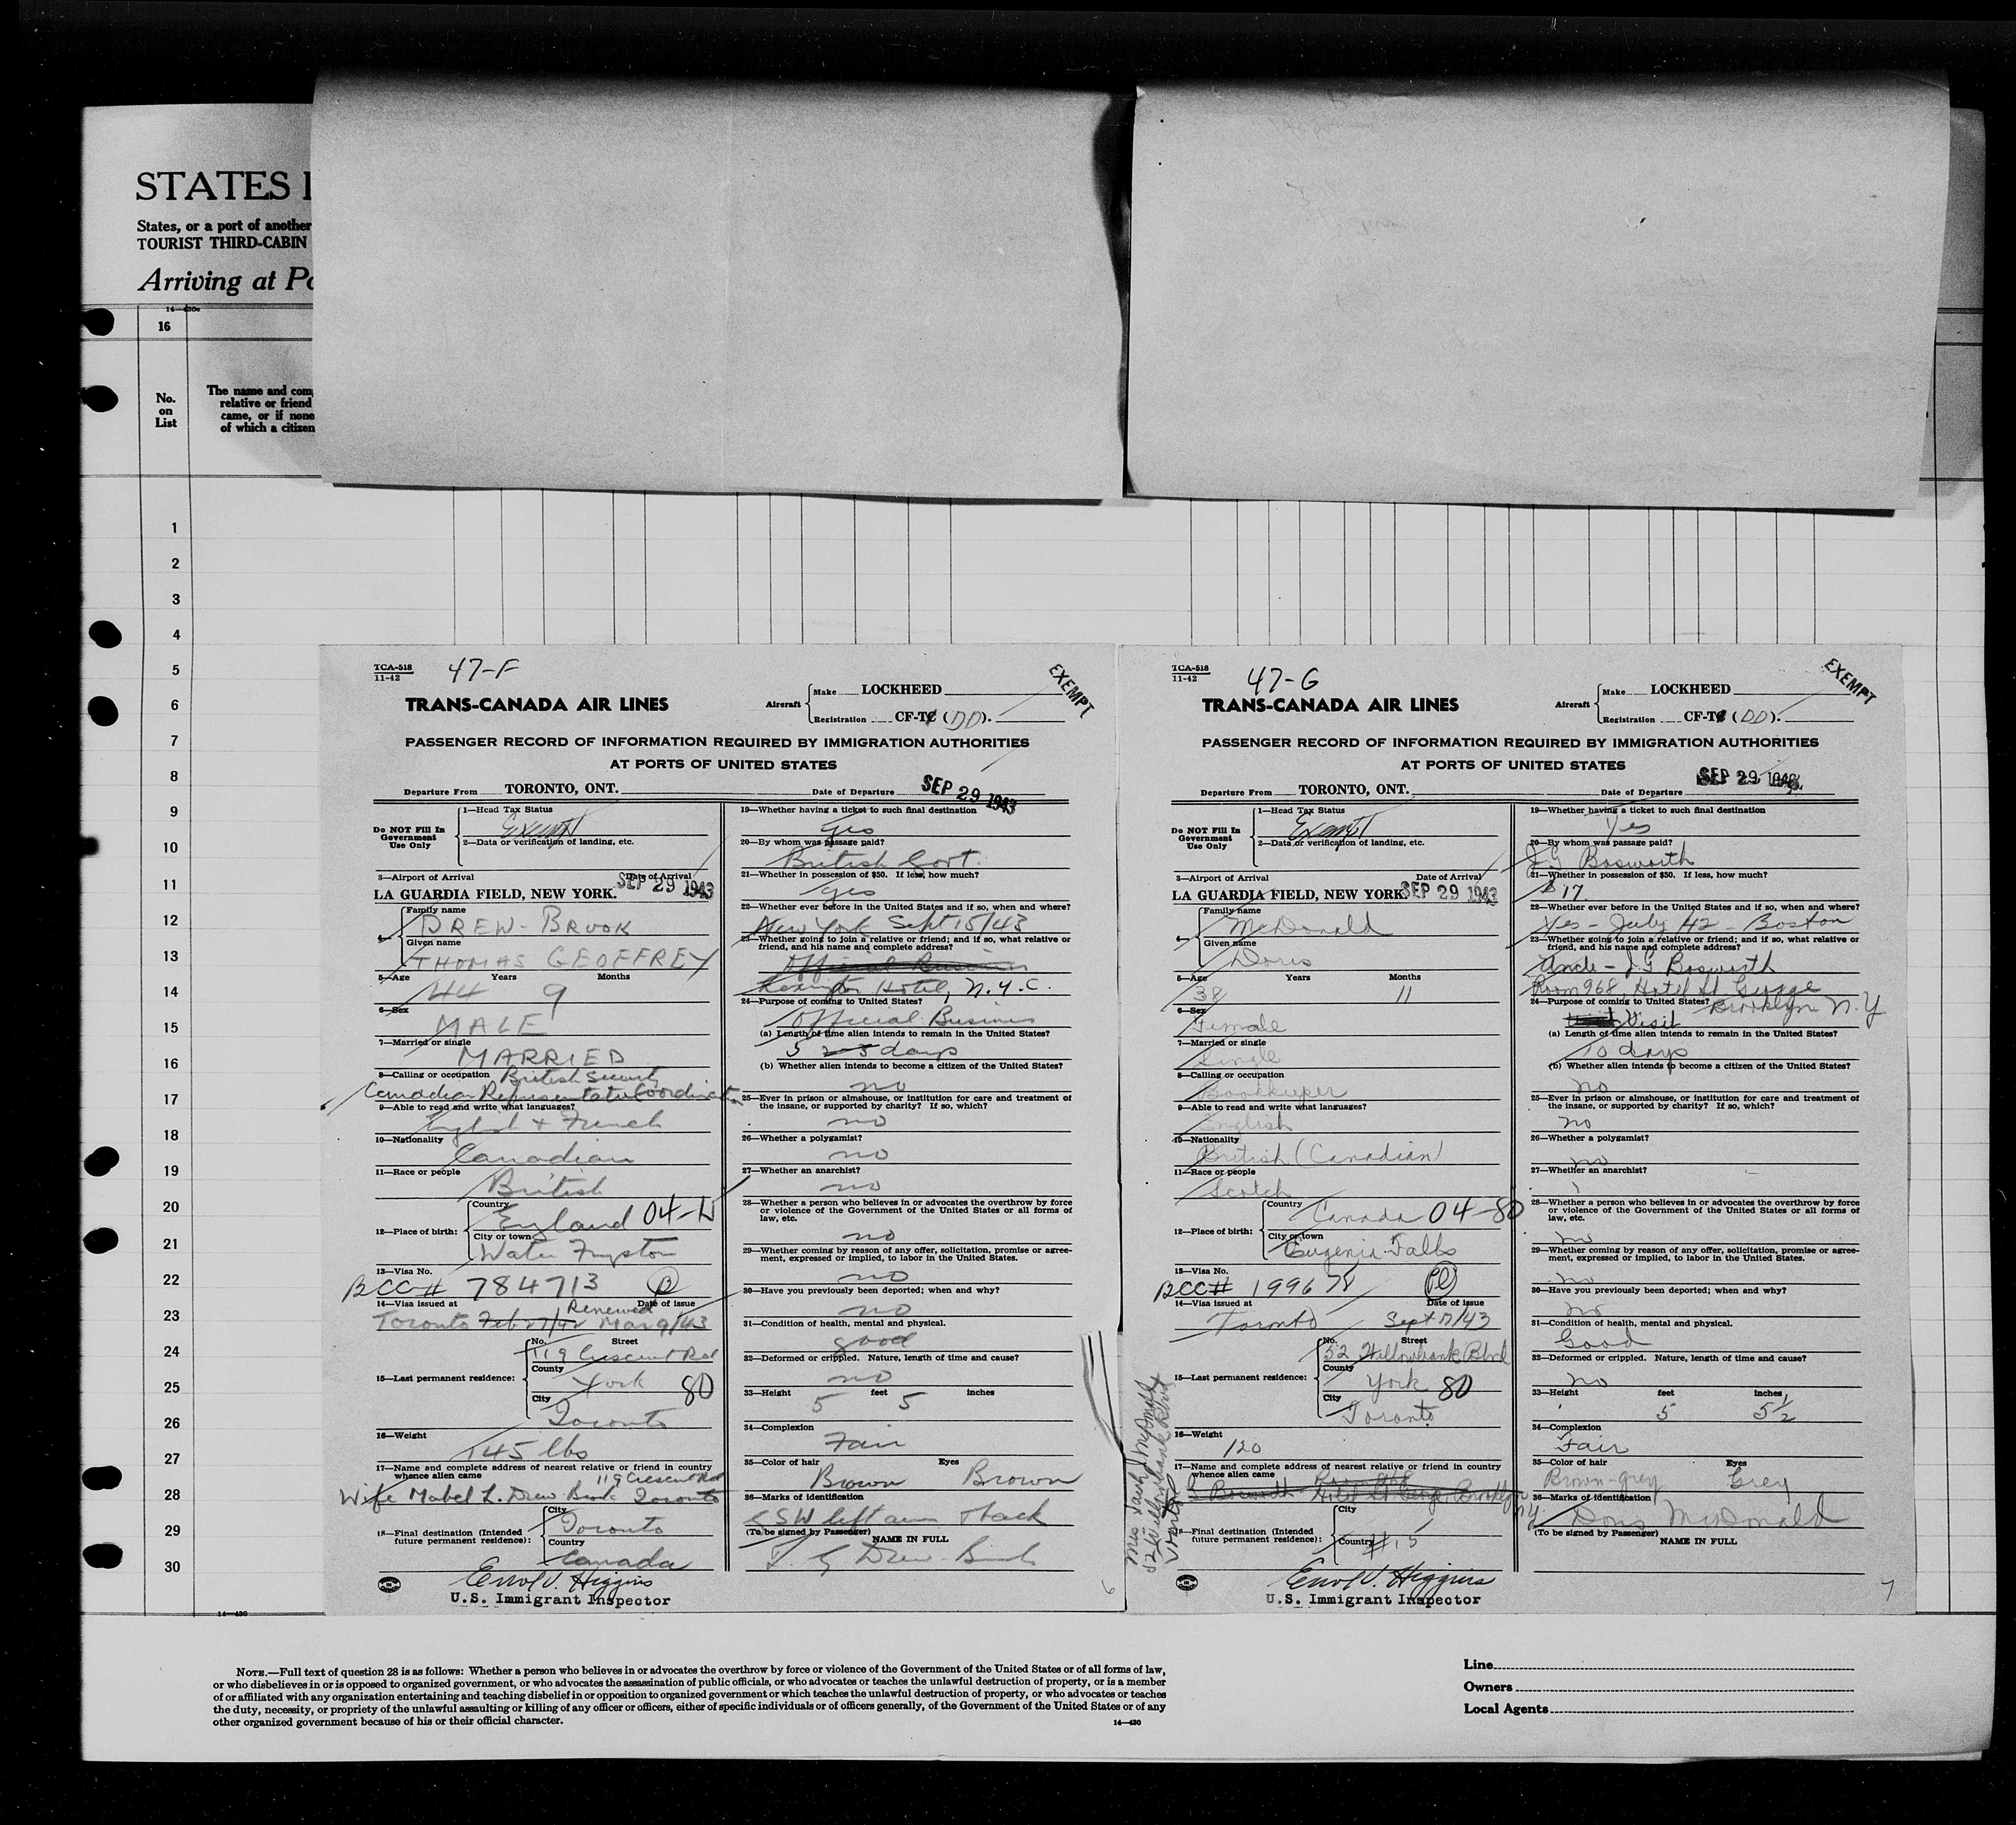 STATES
States, or a port of another
TOURIST THIRD-CABIN
Arriving at
14—430c
16
No.
on
List
The name and
relative or friend
came, or if none
of which a citizen
1
2
3
4
5
6
7
8
9
10
11
12
13
14
15
16
17
18
19
20
21
22
23
24
25
26
27
28
29
30
14—430
TCA-518
11-42
47-F
TRANS-CANADA AIR LINES
Aircraft
Make LOCKHEED
Registration CF-TC (DD).
EXEMPT
PASSENGER RECORD OF INFORMATION REQUIRED BY IMMIGRATION AUTHORITIES
AT PORTS OF UNITED STATES
Departure From TORONTO, ONT. Date of Departure SEP 29 1943
Do NOT Fill In
Government
Use Only
1—Head Tax Status
Exempt
2—Data or verification of landing, etc.
3—Airport of Arrival Date of Arrival
LA GUARDIA FIELD, NEW YORK. SEP 29 1943
4—
Family name
DREW-BROOK
Given name
THOMAS GEOFFREY
5—Age Years Months
44 9
6—Sex
MALE
7—Married or single
MARRIED
8—Calling or occupation British Security
Canadian Representative Coordination
9—Able to read and write what languages?
English + French
10—Nationality
Canadian
11—Race or people
British
12—Place of birth:
Country
England 04-W
City or town
Water
13—Visa No.
BCC# 784713
14—Visa issued at Renewed Date of issue
Toronto Feb 27/42 Mar 9/43
15—Last permanent residence:
No. Street
119 Crescent Rd
County
York 80
City
Toronto
16—Weight
145 lbs
17—Name and complete address of nearest relative or friend in country
whence alien came 119 Crescent Rd
Wife Mabel L. Drew-Brook Toronto
18—Final destination (Intended
future permanent residence):
City
Toronto
Country
Canada
Errol V. Higgins
U.S. Immigrant Inspector
19—Whether having a ticket to such final destination
Yes
20—By whom was passage paid?
British Govt.
21—Whether in possession of $50. If less, how much?
yes
22—Whether ever before in the United States and if so, when and where?
New York Sept 15/43
23—Whether going to join a relative or friend; and if so, what relative or
friend, and his name and complete address?
Official Business
Lexington Hotel, N.Y.C.
24—Purpose of coming to United States?
Official Business
(a) Length of time alien intends to remain in the United States?
5 2-3 days
(b) Whether alien intends to become a citizen of the United States?
no
25—Ever in prison or almshouse, or institution for care and treatment of
the insane, or supported by charity? If so, which?
no
26—Whether a polygamist?
no
27—Whether an anarchist?
no
28—Whether a person who believes in or advocates the overthrow by force
or violence of the Government of the United States or all forms of
law, etc.
no
29—Whether coming by reason of any offer, solicitation, promise or agree-
ment, expressed or implied, to labor in the United States.
no
30—Have you previously been deported; when and why?
no
31—Condition of health, mental and physical.
good
32—Deformed or crippled. Nature, length of time and cause?
no
33—Height feet inches
5 5
34—Complexion
Fair
35—Color of hair Eyes
Brown Brown
36—Marks of identification
GSW left arm + back
(To be signed by Passenger) NAME IN FULL
T. G Drew-Brook
6
TCA-518
11-42
47-G
TRANS-CANADA AIR LINES
Aircraft
Make LOCKHEED
Registration CF-TC (DD).
EXEMPT
PASSENGER RECORD OF INFORMATION REQUIRED BY IMMIGRATION AUTHORITIES
AT PORTS OF UNITED STATES
Departure From TORONTO, ONT. Date of Departure SEP 29 1943
Do NOT Fill In
Government
Use Only
1—Head Tax Status
Exempt
2—Data or verification of landing, etc.
3—Airport of Arrival Date of Arrival
LA GUARDIA FIELD, NEW YORK. SEP 29 1943
Family name
McDonald
4—
Given name
Doris
5—Age Years Months
38 11
6—Sex
Female
7—Married or single
Single
8—Calling or occupation
Bookkeeper
9—Able to read and write what languages?
English
10—Nationality
British (Canadian)
11—Race or people
Scotch
12—Place of birth:
Country
Canada 04-80
City or town
Eugenia Falls
13—Visa No.
BCC# 199678
14—Visa issued at Date of issue
Toronto Sept 17/43
15—Last permanent residence:
No. Street
52 Willowbank Blvd
County
York 80
City
Toronto
16—Weight
120
17—Name and complete address of nearest relative or friend in country
whence alien came Room 968
Bosworth Hotel St. George, Brooklyn
NY
Miss McDonald
52 Willowbank Blvd
Toronto
18—Final destination (Intended
future permanent residence):
City
Country #15
Errol V. Higgins
U.S. Immigrant Inspector
19—Whether having a ticket to such final destination
Yes
20—By whom was passage paid?
J G Bosworth
21—Whether in possession of $50. If less, how much?
$17.
22—Whether ever before in the United States and if so, when and where?
Yes - July 42 - Boston
23—Whether going to join a relative or friend; and if so, what relative or
friend, and his name and complete address?
Uncle - J. G Bosworth
Room 968, Hotel St George
24—Purpose of coming to United States? Brooklyn N.Y
Visit
(a) Length of time alien intends to remain in the United States?
10 days
(b) Whether alien intends to become a citizen of the United States?
no
25—Ever in prison or almshouse, or institution for care and treatment of
the insane, or supported by charity? If so, which?
no
26—Whether a polygamist?
no
27—Whether an anarchist?
28—Whether a person who believes in or advocates the overthrow by force
or violence of the Government of the United States or all forms of
law, etc.
no
29—Whether coming by reason of any offer, solicitation, promise or agree-
ment, expressed or implied, to labor in the United States.
no
30—Have you previously been deported; when and why?
no
31—Condition of health, mental and physical.
Good
32—Deformed or crippled. Nature, length of time and cause?
no
33—Height feet inches
5 5½
34—Complexion
Fair
35—Color of hair Eyes
Brown-grey Grey
36—Marks of identification
Doris McDonald
(To be signed by Passenger) NAME IN FULL
7
NOTE.—Full text of question 28 is as follows: Whether a person who believes in or advocates the overthrow by force or violence of the Government of the United States or of all forms of law,
or who disbelieves in or is opposed to organized government, or who advocates the assassination of public officials, or who advocates or teaches the unlawful destruction of property, or is a member
of or affiliated with any organization entertaining and teaching disbelief in or opposition to organized government or which teaches the unlawful destruction of property, or who advocates or teaches
the duty, necessity, or propriety of the unlawful assaulting or killing of any officer or officers, either of specific individuals or of officers generally, of the Government of the United States or of any
other organized government because of his or their official character.
14—430
Line
Owners
Local Agents